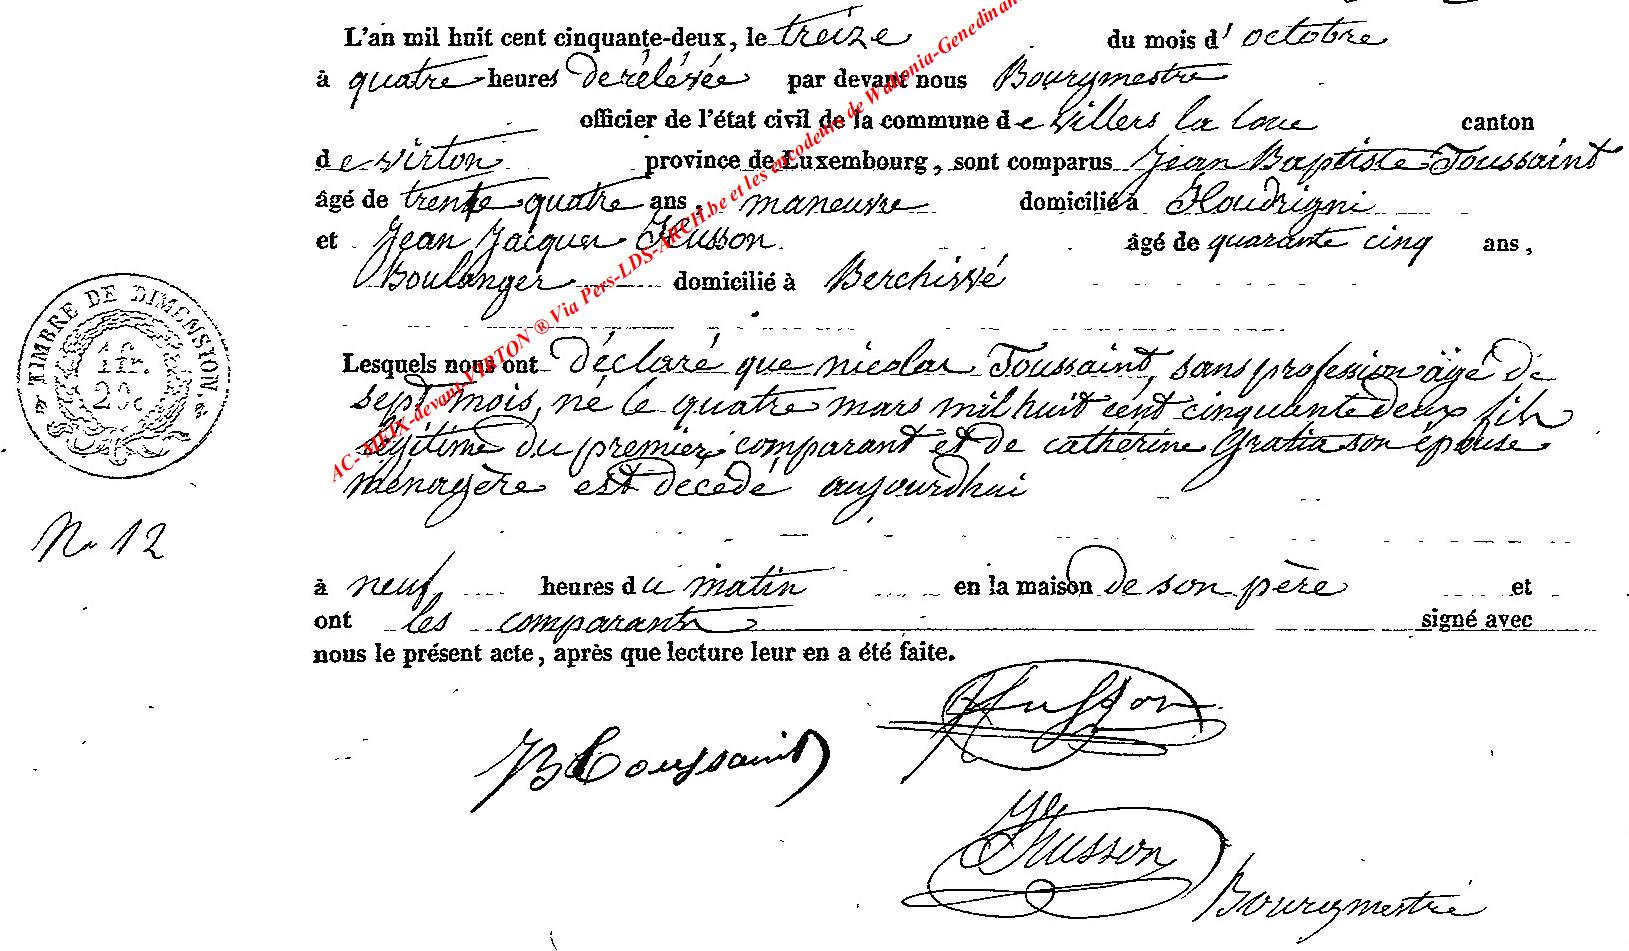 L'an mil huit cent cinquante-deux, le treize du mois d' octobre
à quatre heures de rélévée par devant nous Bourgmestre
officier de l'état civil de la commune de Villers la loue canton
de virton province de Luxembourg, sont comparus Jean Baptiste Toussaint
âgé de trente quatre ans, maneuvre domicilié à Houdrigni
et Jean Jacques Husson âgé de quarante cinq ans,
Boulanger domicilié à Berchivé
Lesquels nous ont déclaré que nicolas Toussaint, sans profession âgé de
sept mois, né le quatre mars mil huit cent cinquante deux fils
légitime du premier comparant et de cathérine Gratia son épouse
ménagère est décédé aujourdhui
à neuf heures du matin en la maison de son père et
ont les comparants signé avec
nous le présent acte, après que lecture leur en a été faite.
TIMBRE DE DIMENSION.
1 fr.
20c
N. 12
JB Toussaint
Husson
JHusson
Bourgmestre
AC-MEIX-devant-VIRTON ® Via Pers-LDS-ARCH.be et les encodeurs de Wallonia-Genedinan